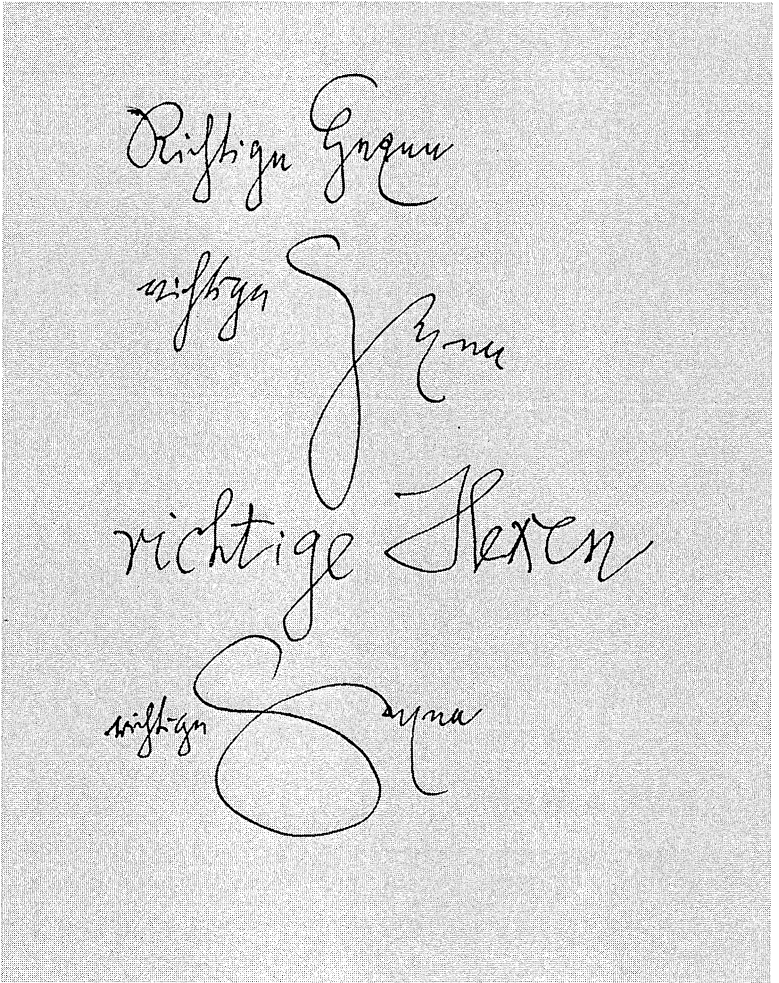 Richtige Hexen
richtige Hexen
richtige Hexen
richtige Hexen